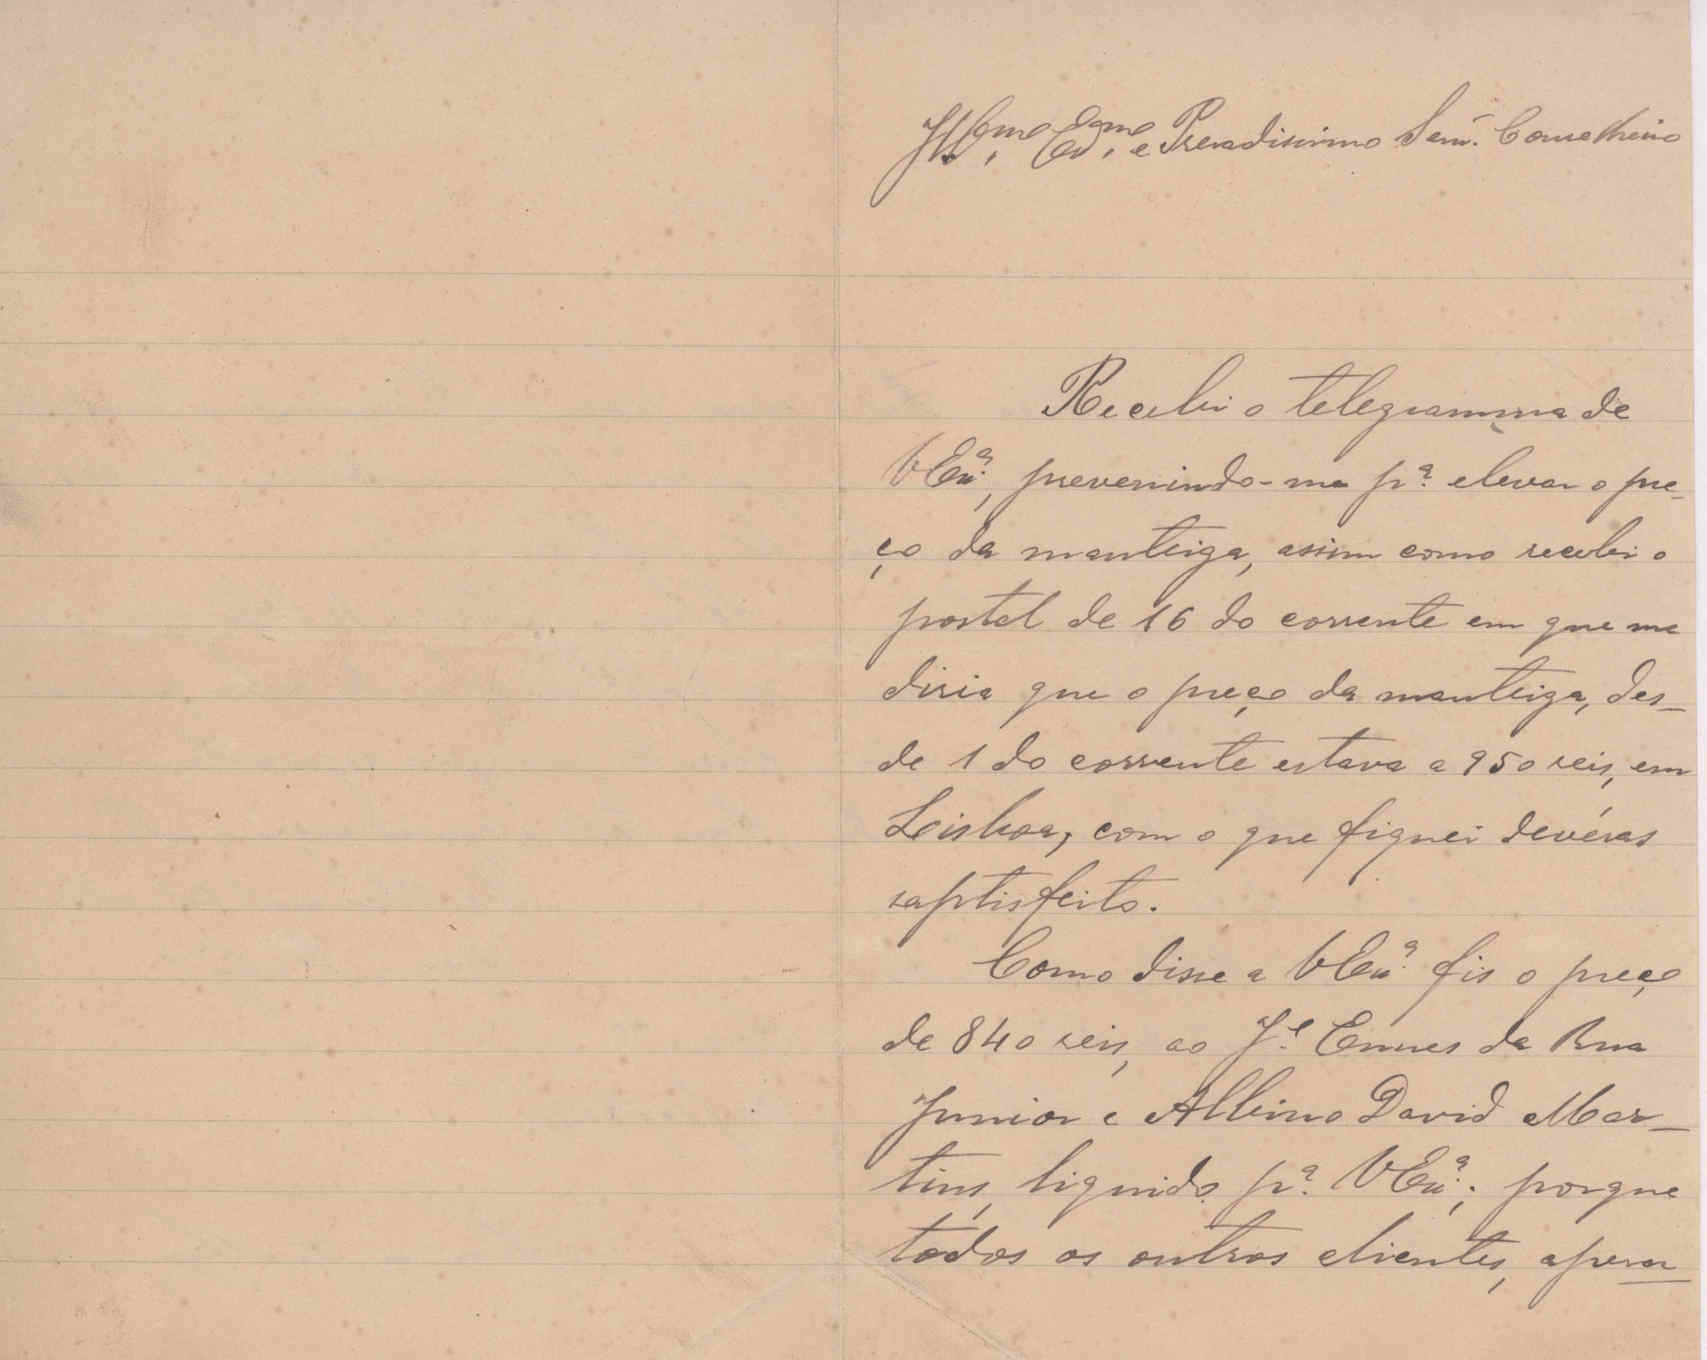 Ill.mo Ex.mo e Presadisimo Senr. Conselheiro
Recebi o telegramma de
V Exª, prevenindo-me pª. elevar o pre-
ço da manteiga, asim como recebi o
postal de 16 do corrente em que me
disia que o preço da manteiga, des-
de 1 do corrente estava a 950 reis, em
Lisboa, com o que fiquei devéras
saptisfeito.
Como disse a V Exª. fis o preço
de 840 reis, ao Jé. Ennes da Rua
Junior e Albino David Mar-
tins, liquido pª. V Exª.; porque
todos os outros clientes, apesar